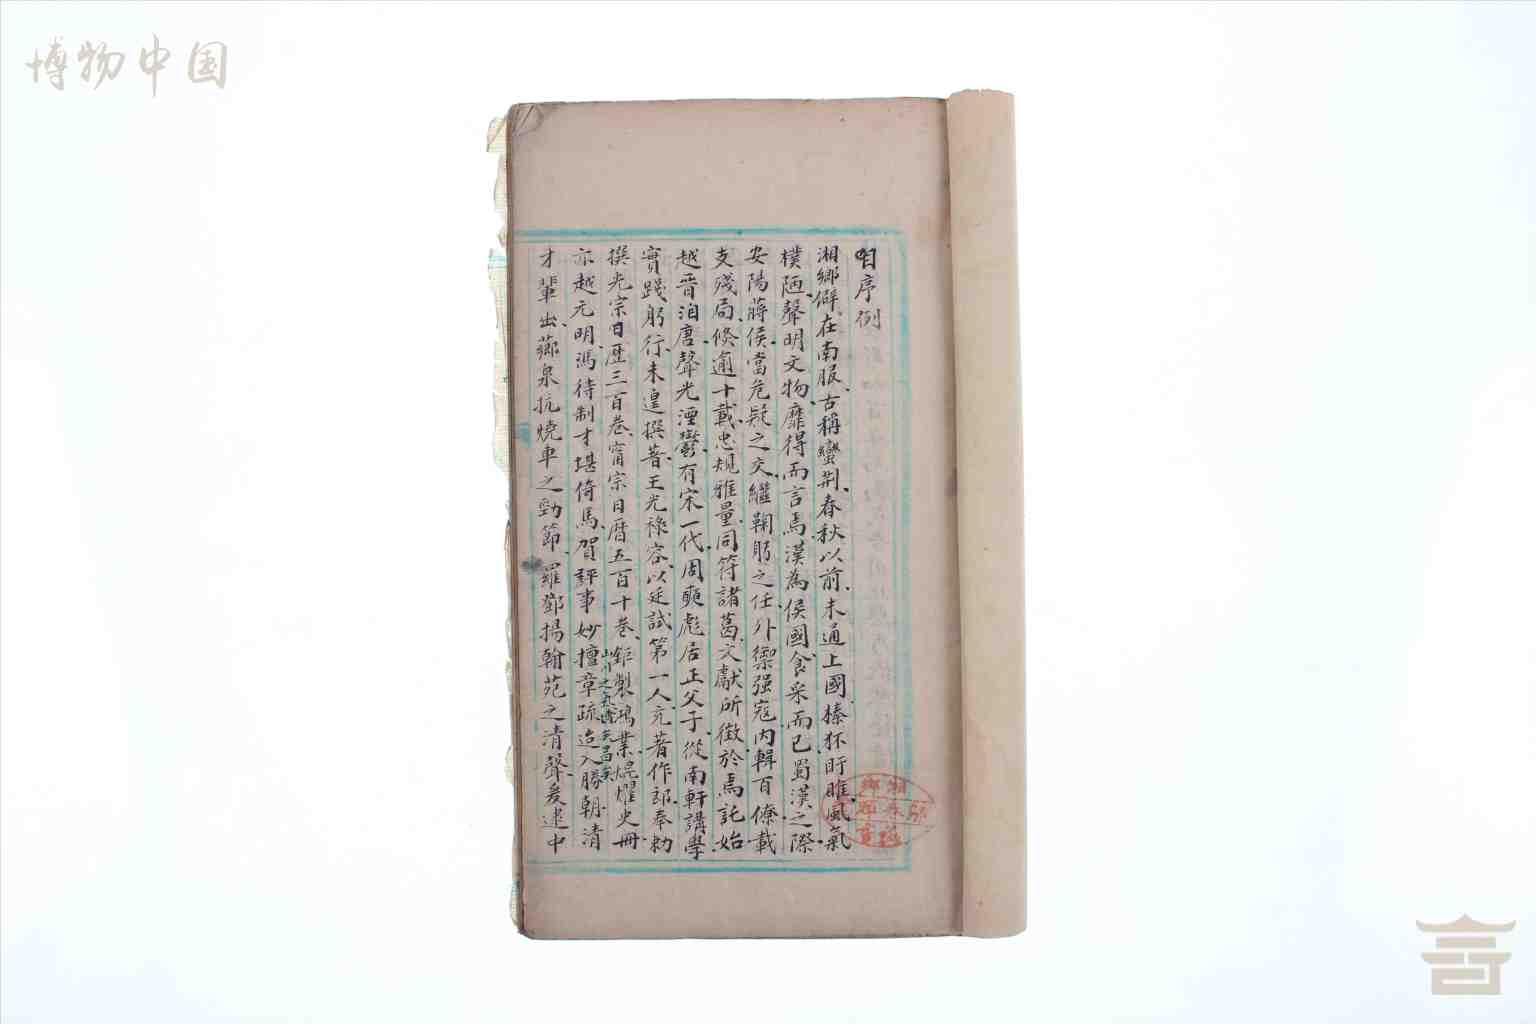 博物中国
序例
湘鄉僻在南服古稱蠻荆春秋以前未通上國榛狉盱睢風氣
樸陋聲明文物靡得而言焉漢為侯國食采而已蜀漢之際
安陽蔣侯當危疑之交繼鞠躬之任外禦强寇内輯百僚載
支殘局倏逾十載忠規雅量同符諸葛文獻所徵於焉託始
越晉洎唐聲光湮鬱有宋一代周奭彪居正父子從南軒講學
實踐躬行未遑撰著王光祿容以廷試第一人充著作郎奉勅
撰光宗日歷三百卷甯宗日曆五百十卷鉅製鴻業焜燿史冊
亦越元明馮待制才堪倚馬賀評事妙擅章疏迨入勝朝清
山川之氣
才輩出薌泉抗燒車之勁節羅鄧揚翰苑之清聲爰逮中